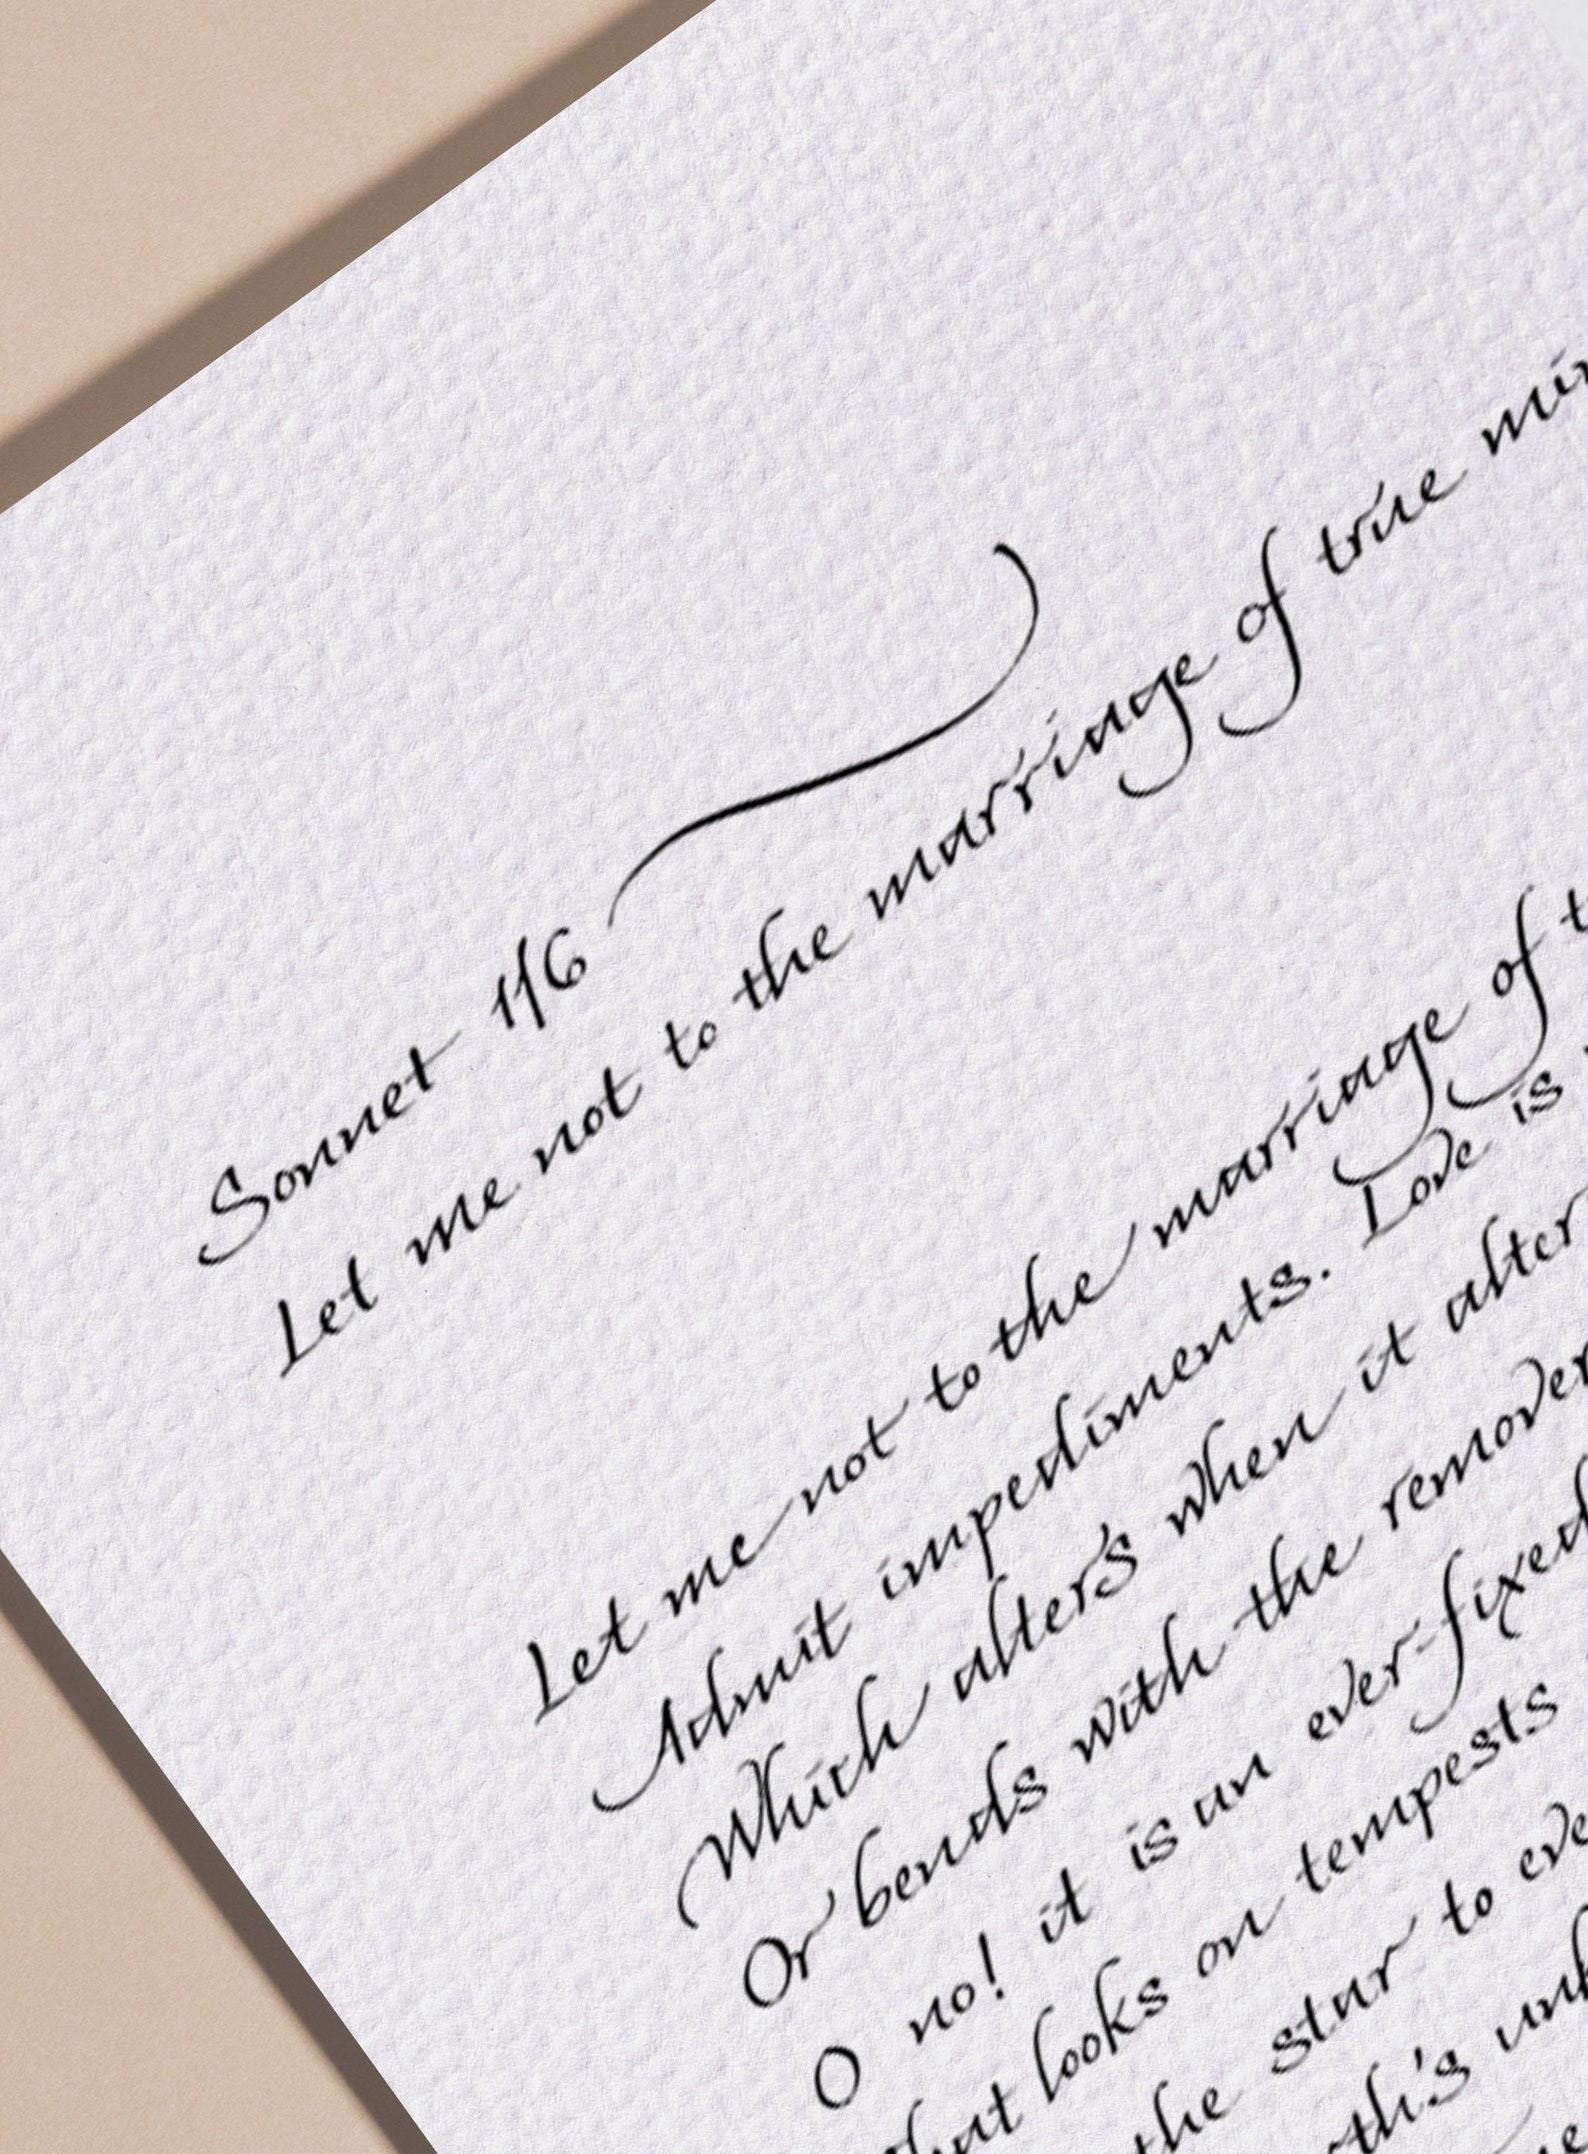 Sonnet 116
Let me not to the marriage of true
Let me not to the marriage of
Admit impediments. Love is
Which alters when it
Or bends with the
O no! it is an
looks on tempests
the star to